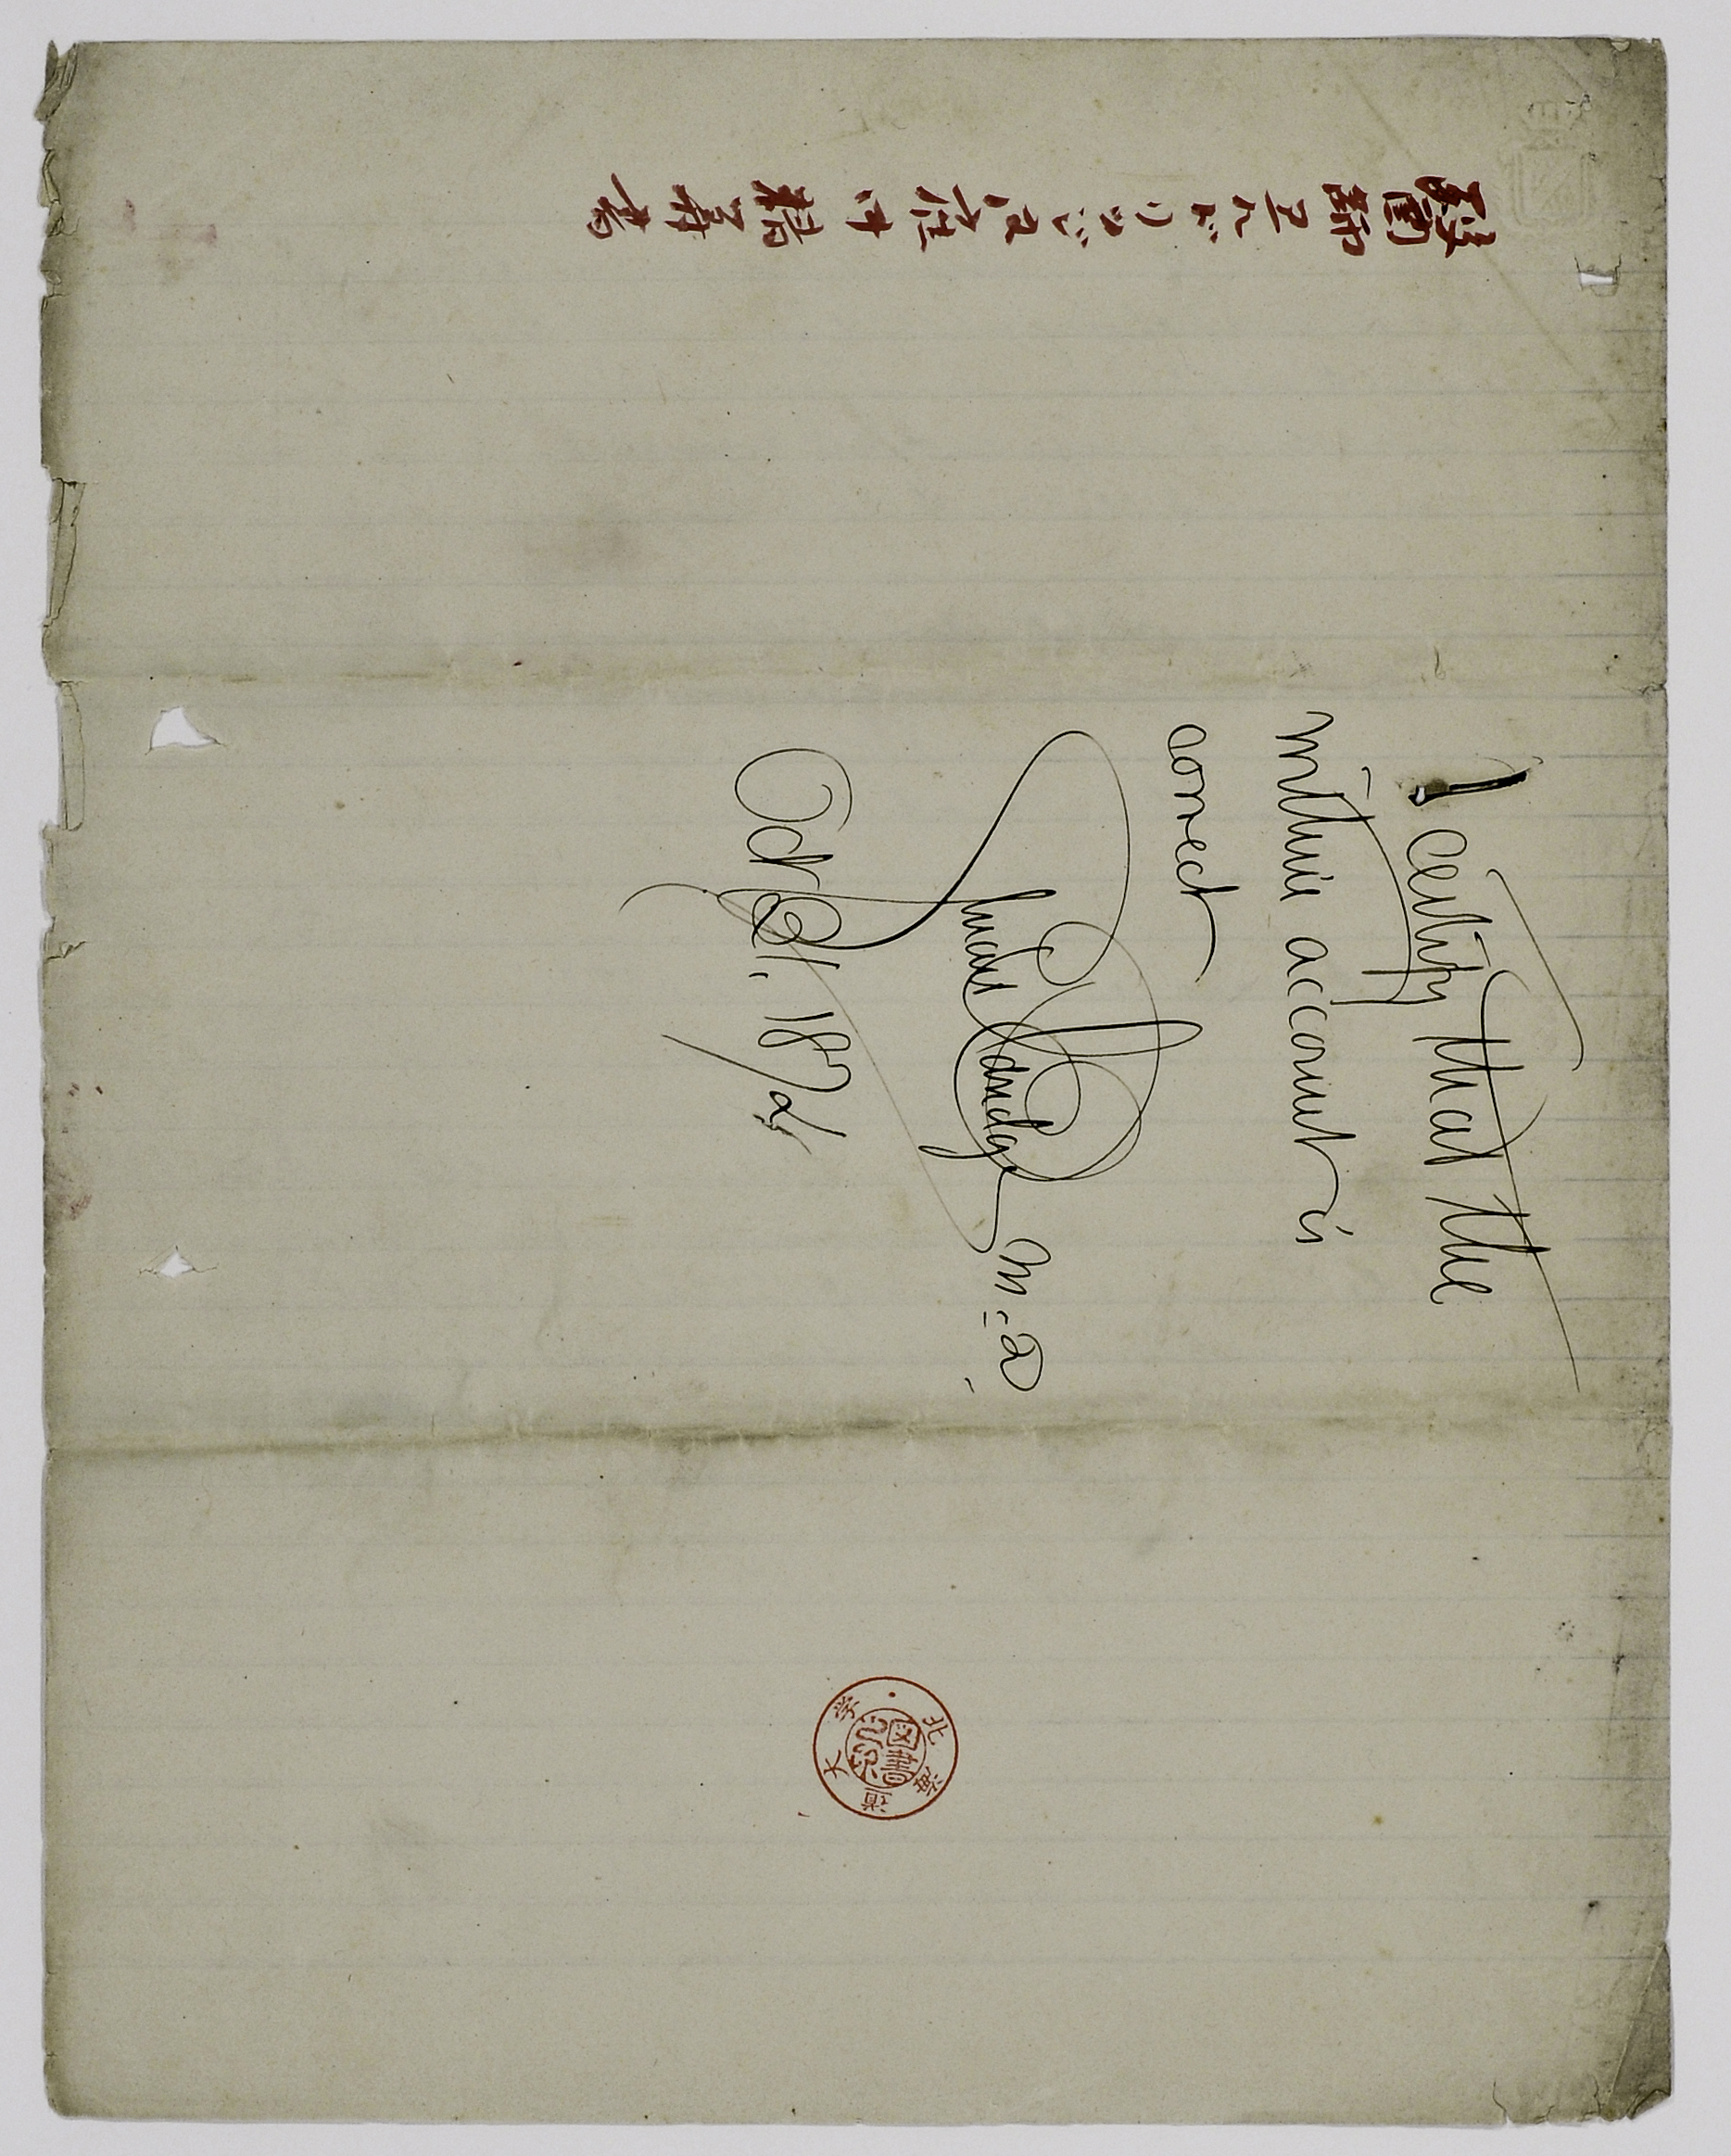 醫師エルドリッジ氏
算書
I certify that the
within account is
correct
Stuart Eldridge M.D.
Oct 21. 1872
北海道大学
図書